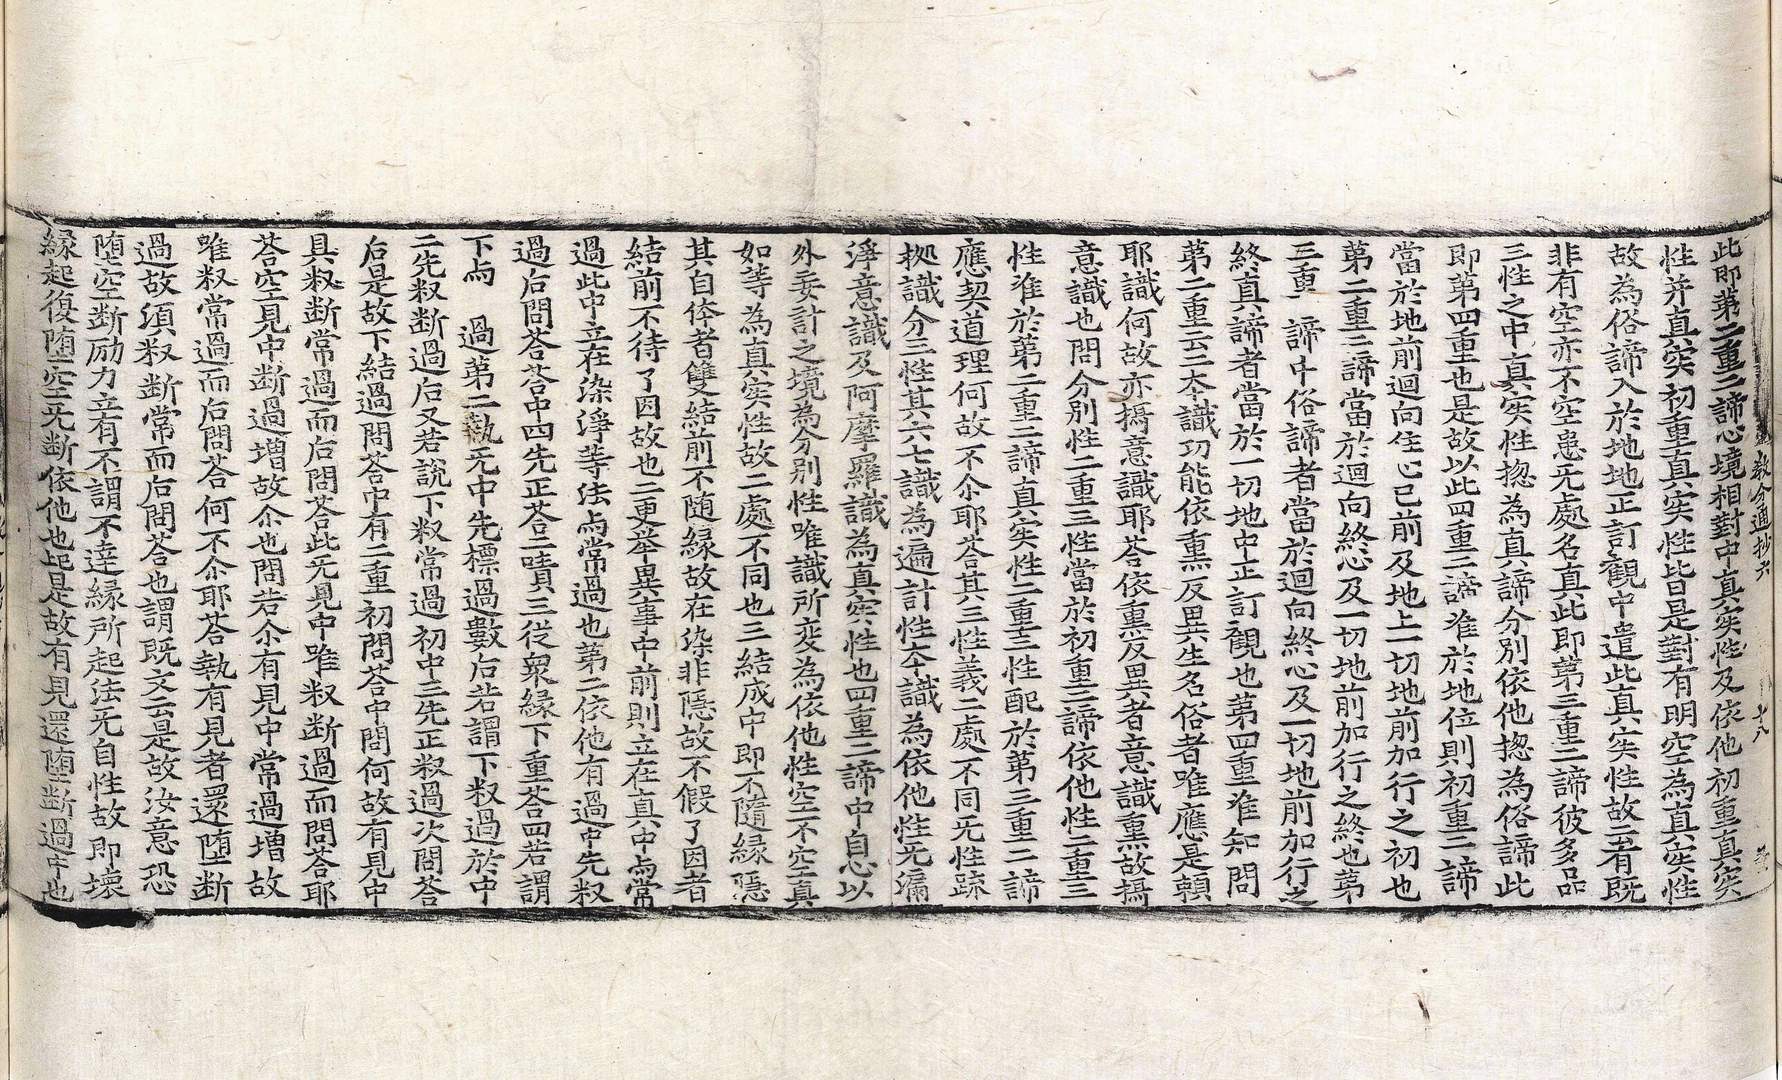 此即第二重二諦心境相對中真实性及依他初重真实
教分通抄六 十八
性并真实初重真实性皆是對有明空為真实性
故為俗諦入於地地正訂観中遣此真实性故云有既
非有空亦不空患无處名真此即第三重二諦彼多品
三性之中真实性揔為真諦分別依他揔為俗諦此
即第四重也是故以此四重二諦准於地位則初重二諦
當於地前迴向住心已前及地上一切地前加行之初也
第二重二諦當於迴向終心及一切地前加行之終也第
三重二諦中俗諦者當於迴向終心及一切地前加行之
終真諦者當於一切地中正訂観也第四重准知問
第二重云二本識功能依熏反異生名俗者唯應是賴
耶識何故亦攝意識耶荅依熏反異者意識熏故攝
意識也問分別性二重三性當於初重三諦依他性二重三
性准於第二重二諦真实性二重三性配於第三重二諦
應契道理何故不尒耶荅其三性義二處不同无性疏
拠識分三性其六七識為遍計性本識為依他性无漏
淨意識及阿摩羅識為真实性也四重二諦中自心以
外妄計之境為分別性唯識所変為依他性空不空真
如等為真实性故二處不同也三結成中即不隨緣隱
其自体者雙結前不隨緣故在染非隱故不假了因者
結前不待了因故也二更举異事中前則立在真中尚常
過此中立在染淨等法尚常過也第二依他有過中先釈
過后問荅荅中四先正荅二啨三従衆緣下重荅四若謂
下尚 過第二執无中先標過數后若謂下釈過於中
二先釈断過后又若說下釈常過初中三先正釈過次問荅
后是故下結過問荅中有二重初問荅中問何故有見中
具釈断常過而后問荅此无見中唯釈断過而問荅耶
荅空見中断過增故尒也問若尒有見中常過増故
唯釈常過而后問荅何不尒耶荅執有見者還堕断
過故須釈断常而后問荅也謂既文云是故汝意恐
堕空断励力立有不謂不達緣所起法无自性故即壊
縁起復堕空无断依他也是故有見還堕断過中也